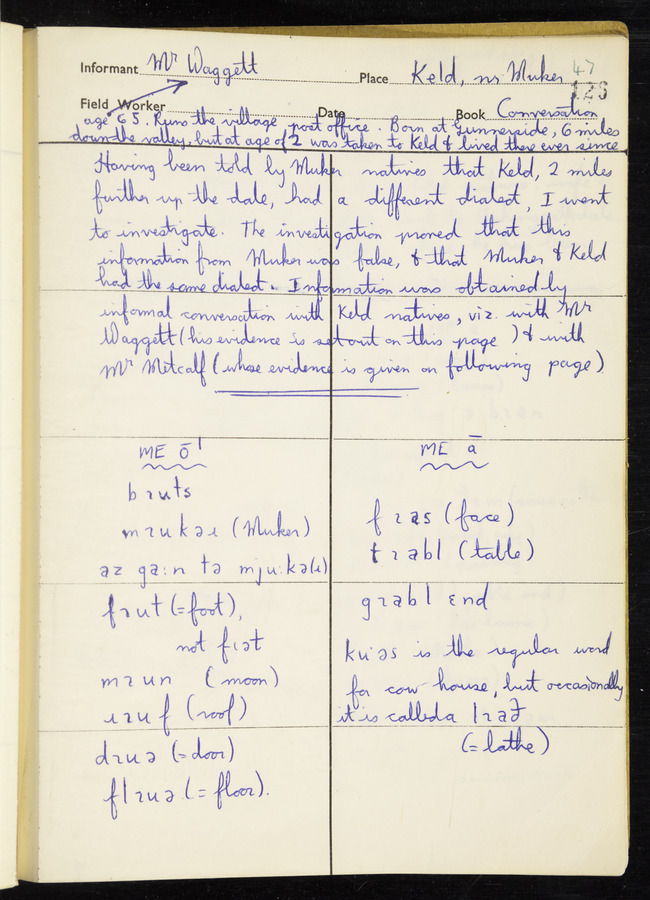 Informant Mr Waggett Place Keld, nr Muker 47
126
Field Worker Date Book Conversation
age 65. Runs the village post office. Born at Gunnerside, 6 miles
down the valley, but at age of 2 was taken to Keld & lived there ever since
Having been told by Muker natives that Keld, 2 miles
further up the dale, had a different dialect, I went
to investigate. The investigation proved that this
information from Muker was false, & that Muker & Keld
had the same dialect. Information was obtained by
informal conversation with Keld natives, viz. with Mr
Waggett (his evidence is set out on this page) & with
Mr Metcalf (whose evidence is given on following page).
ME ō¹
bɪuts
mɪukəɹ (Muker)
az ga:n tə mju:kə(ɹ)
fɪut (=foot),
not fɪət
mɪun (moon)
ɹɪuf (roof)
dɪuə (=door)
flɪuə (=floor).
ME ā
fɪəs (face)
tɪəbl (table)
gɪəbl ɛnd
ku'əs is the regular word
for cow house, but occasionally
it is called a lɪəð
(=lathe)